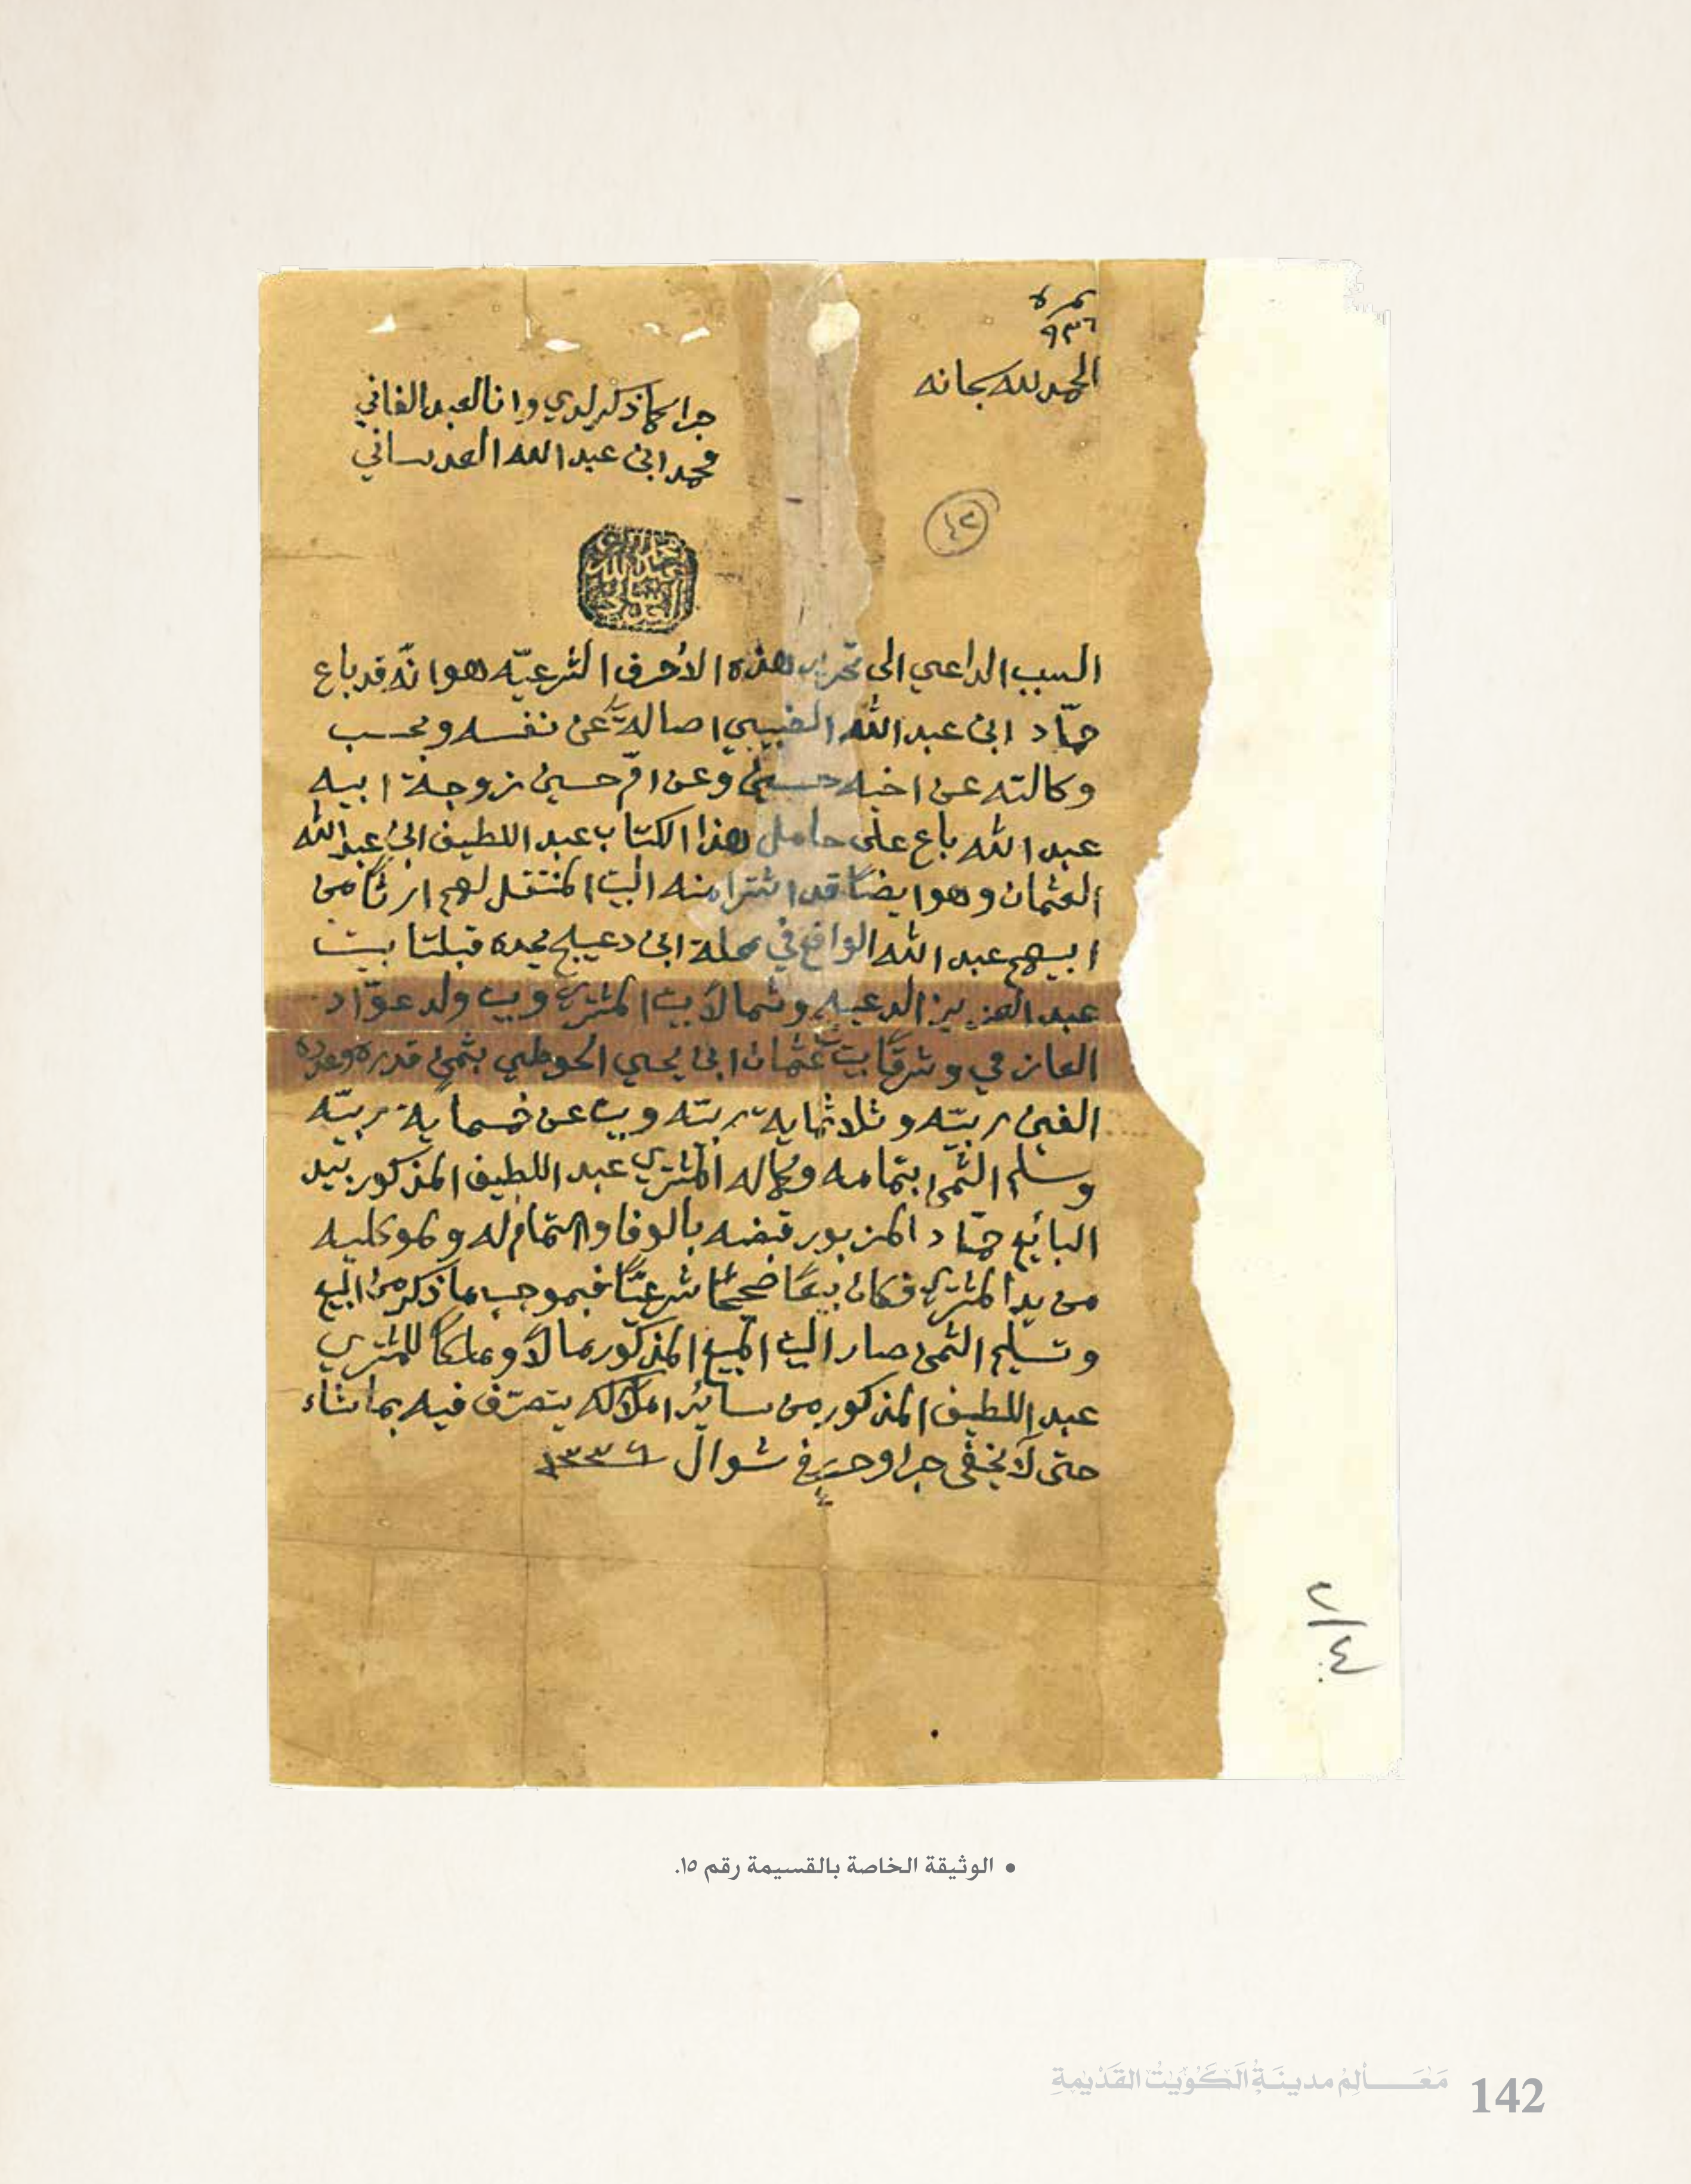 نمرة
٩٣٦
الحمد لله سبحانه
جرا كما ذكر لدي وانا العبد الفاني
محمد ابن عبد الله العدساني
٤٢
السبب الداعي الى تحرير هذه الأحرف الشرعيّه هو انّه قد باع
حمّاد ابن عبد الله اصالةً عن نفسه وبحسب
وكالته عن اخيه حسين وعن امّ حسين زوجة ابيه
عبد الله باع على حامل هذا الكتاب عبد اللطيف ابن عبد الله
العثمان وهو ايضاً قد اشترا منه البيت المنتقل لهم ارثاً من
ابيهم عبد الله الواقع في محلة ابن دعيج يحده قبلتا بيت
عبد العزيز الدعيج وشمالاً بيت المشتري وبيت ولد عوّاد
العازمي وشرقاً بيت عثمان ابن يحيي الحوطي بثمنٍ قدره وعدده
الفين ربيّه وثلاثماية ربيّه وبيت عن خمسماية ربيّه
وسلم الثمن بتمامه وكماله المشتري عبد اللطيف المذكور بيد
البائع حمّاد المزبور قبضه بالوفا والتمام له ولموكليه
من يد المشتري فكان بيعاً صحيحاً شرعيّاً فبموجب ما ذكر من البيع
وتسليم الثمن صار البيت المبيع المذكور مالاً وملكاً للمشتري
عبد اللطيف المذكور من سائر املاكه يتصرّف فيه بما شاء
حتى لا يخفى جرا وحرر في شوال ١٣٣٦
٤/٢
• الوثيقة الخاصة بالقسيمة رقم ١٥.
مَعَالِمُ مدينَةِ الكُوَيْتِ القَدْيمَةِ 142